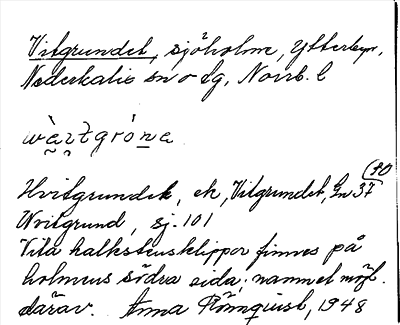 Vitgrundet, sjöholme, Ytterbyn,
Nederkalix sn o tg, Norrb. l
Hvitgrundet, ek, Vitgrundet, Gn 37
Wvitgrund, sj. 101
Vita kalkstensklippor finnes på
holmens södra sida; namnet möjl.
därav. Anna Rönnquist, 1948